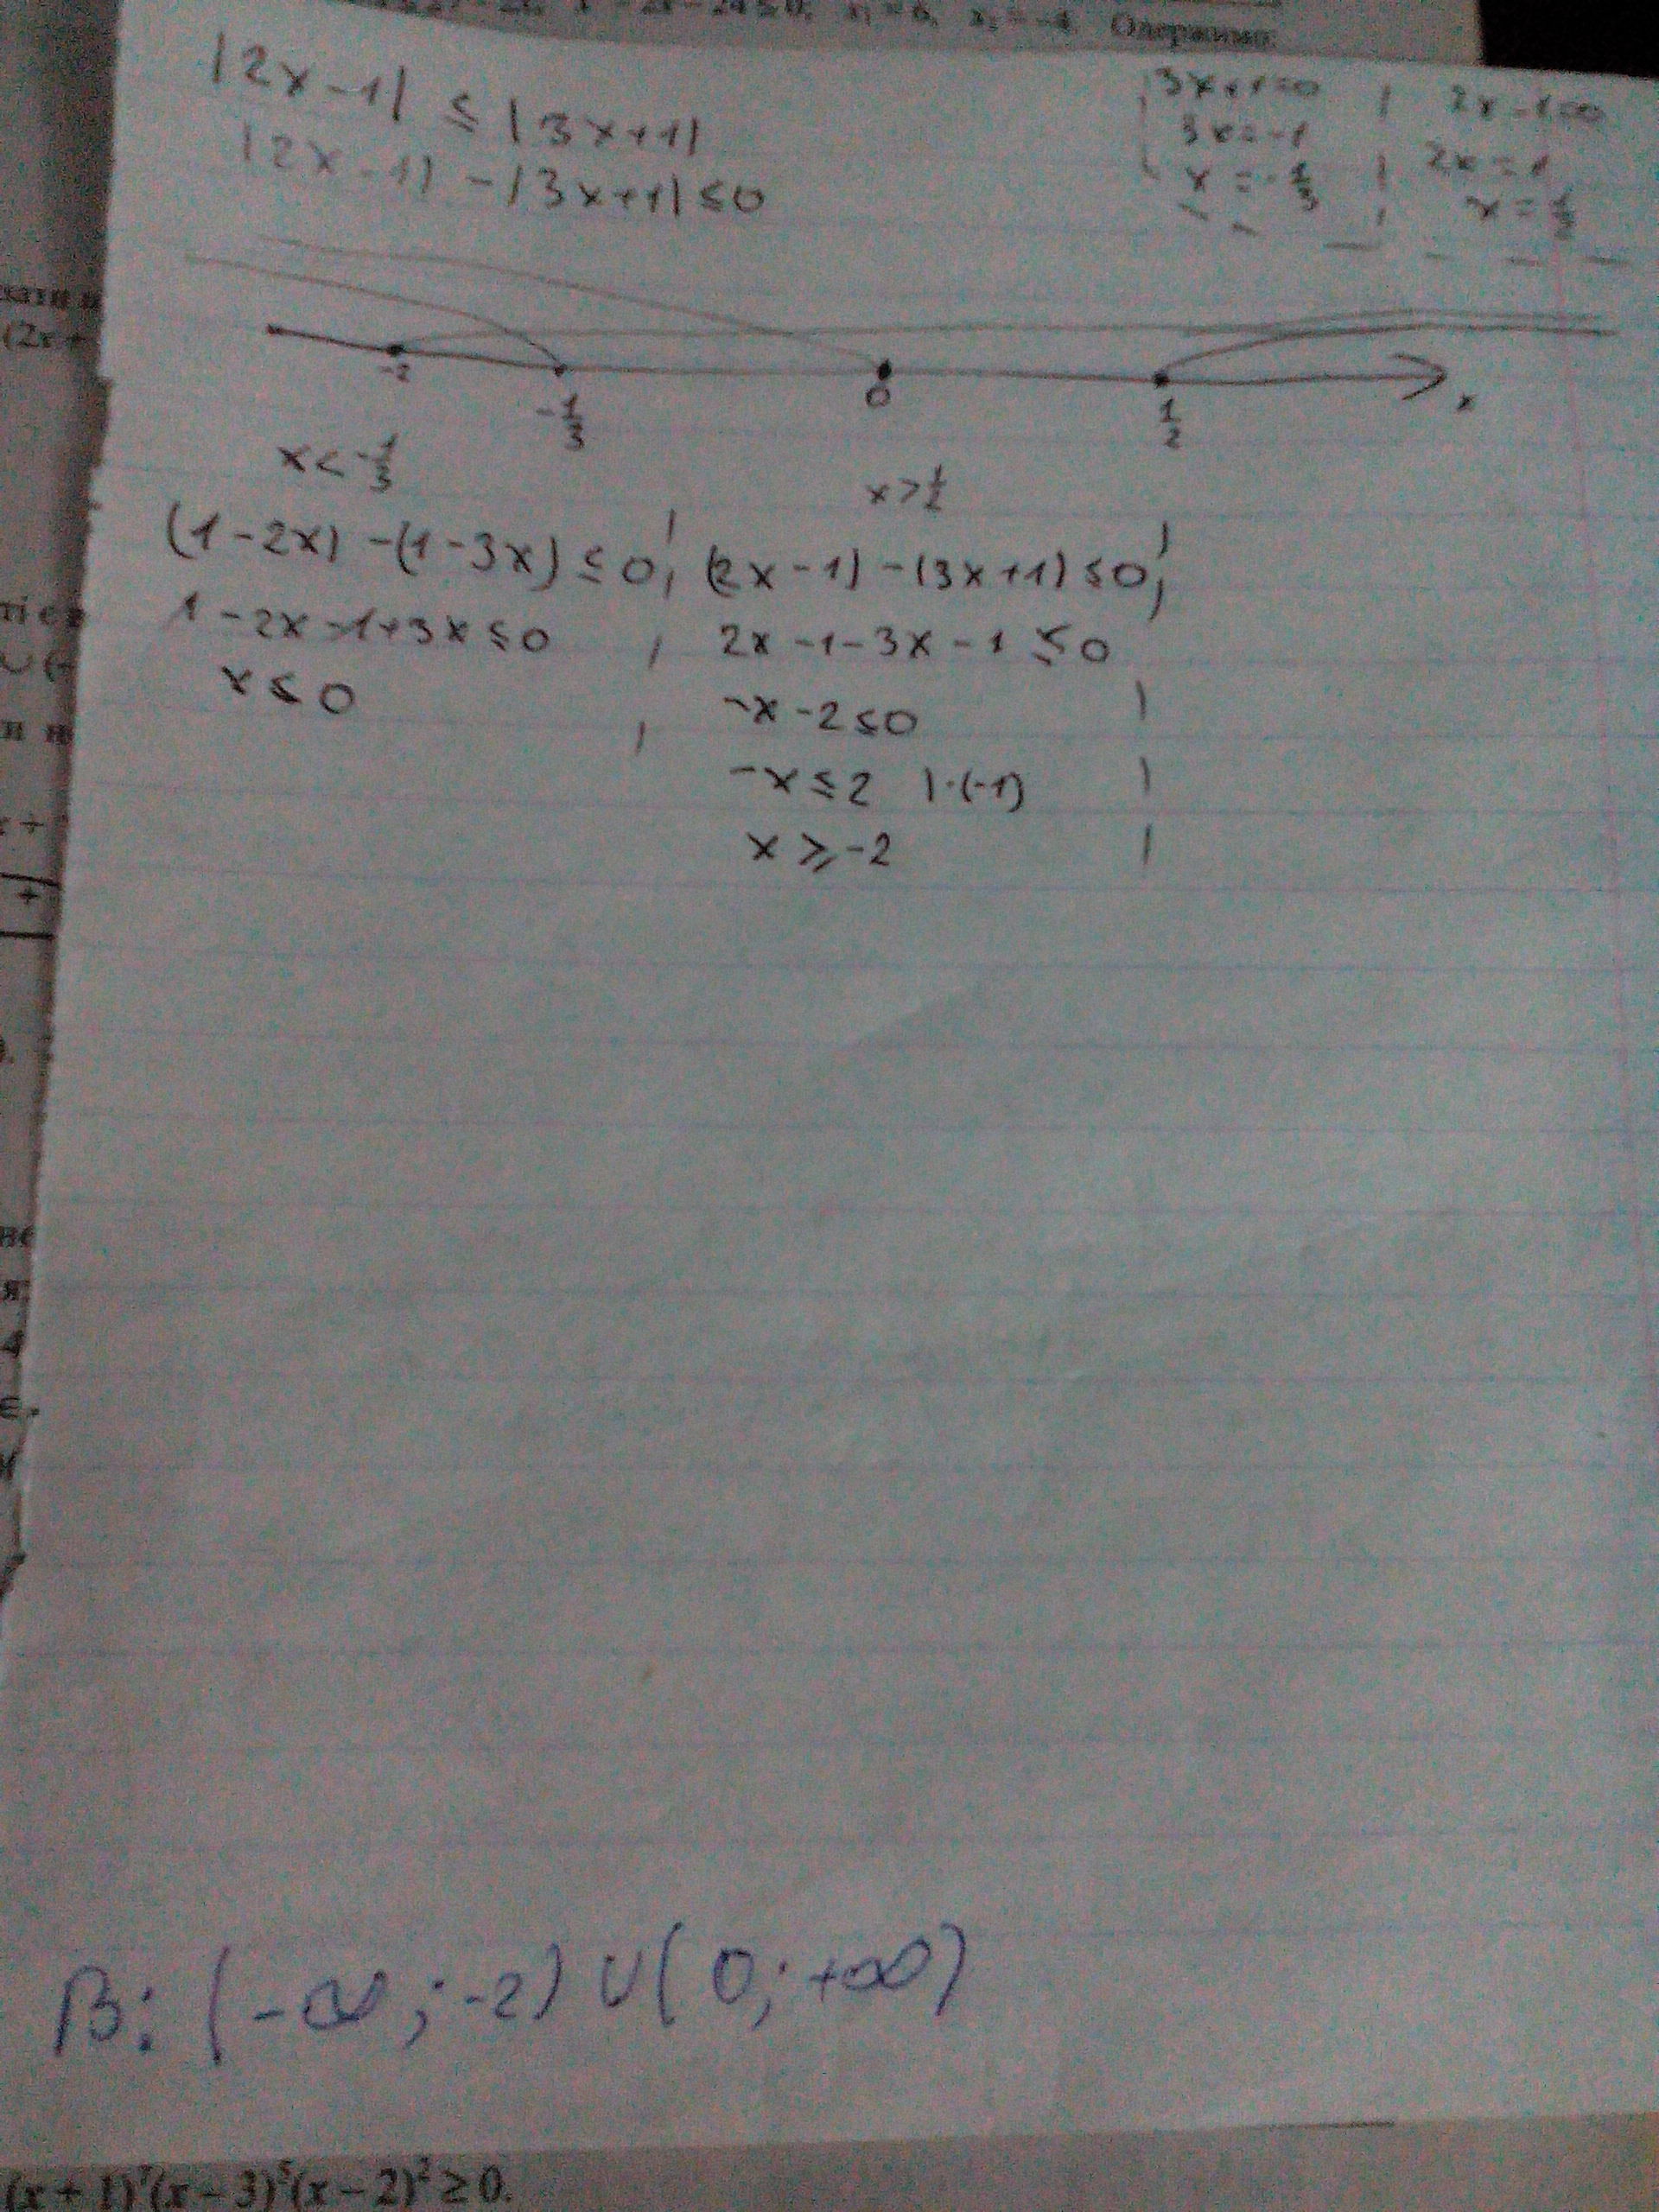 x₁ = 6, x₂ = -4. Одержимо:
|2x-1| ≤ |3x+1|
|2x-1| - |3x+1| ≤ 0
3x+1=0 | 2x-1=0
3x=-1 | 2x=1
x=-1/3 | x=1/2
-2 -1/3 0 1/2 x
x<-1/3 x>1/2
(1-2x) -(1-3x) ≤ 0 | (2x-1) -(3x+1) ≤ 0 |
1-2x-1+3x ≤ 0 | 2x-1-3x-1 ≤ 0
x ≤ 0 | -x-2 ≤ 0 |
-x ≤ 2 |·(-1) |
x ≥ -2 |
В: (-∞; -2) ∪ (0; +∞)
(x+1)⁷(x-3)⁵(x-2)² ≥ 0.